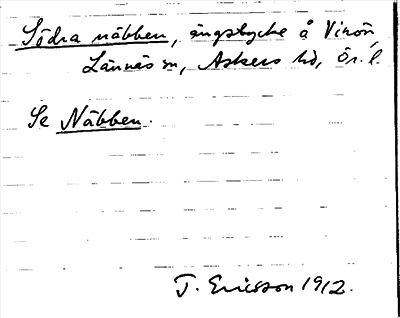 Södra näbben, ängstycke å Vinön,
Lännäs sn, Askers hd, Ör. l.
Se Näbben.
T. Ericsson 1912.